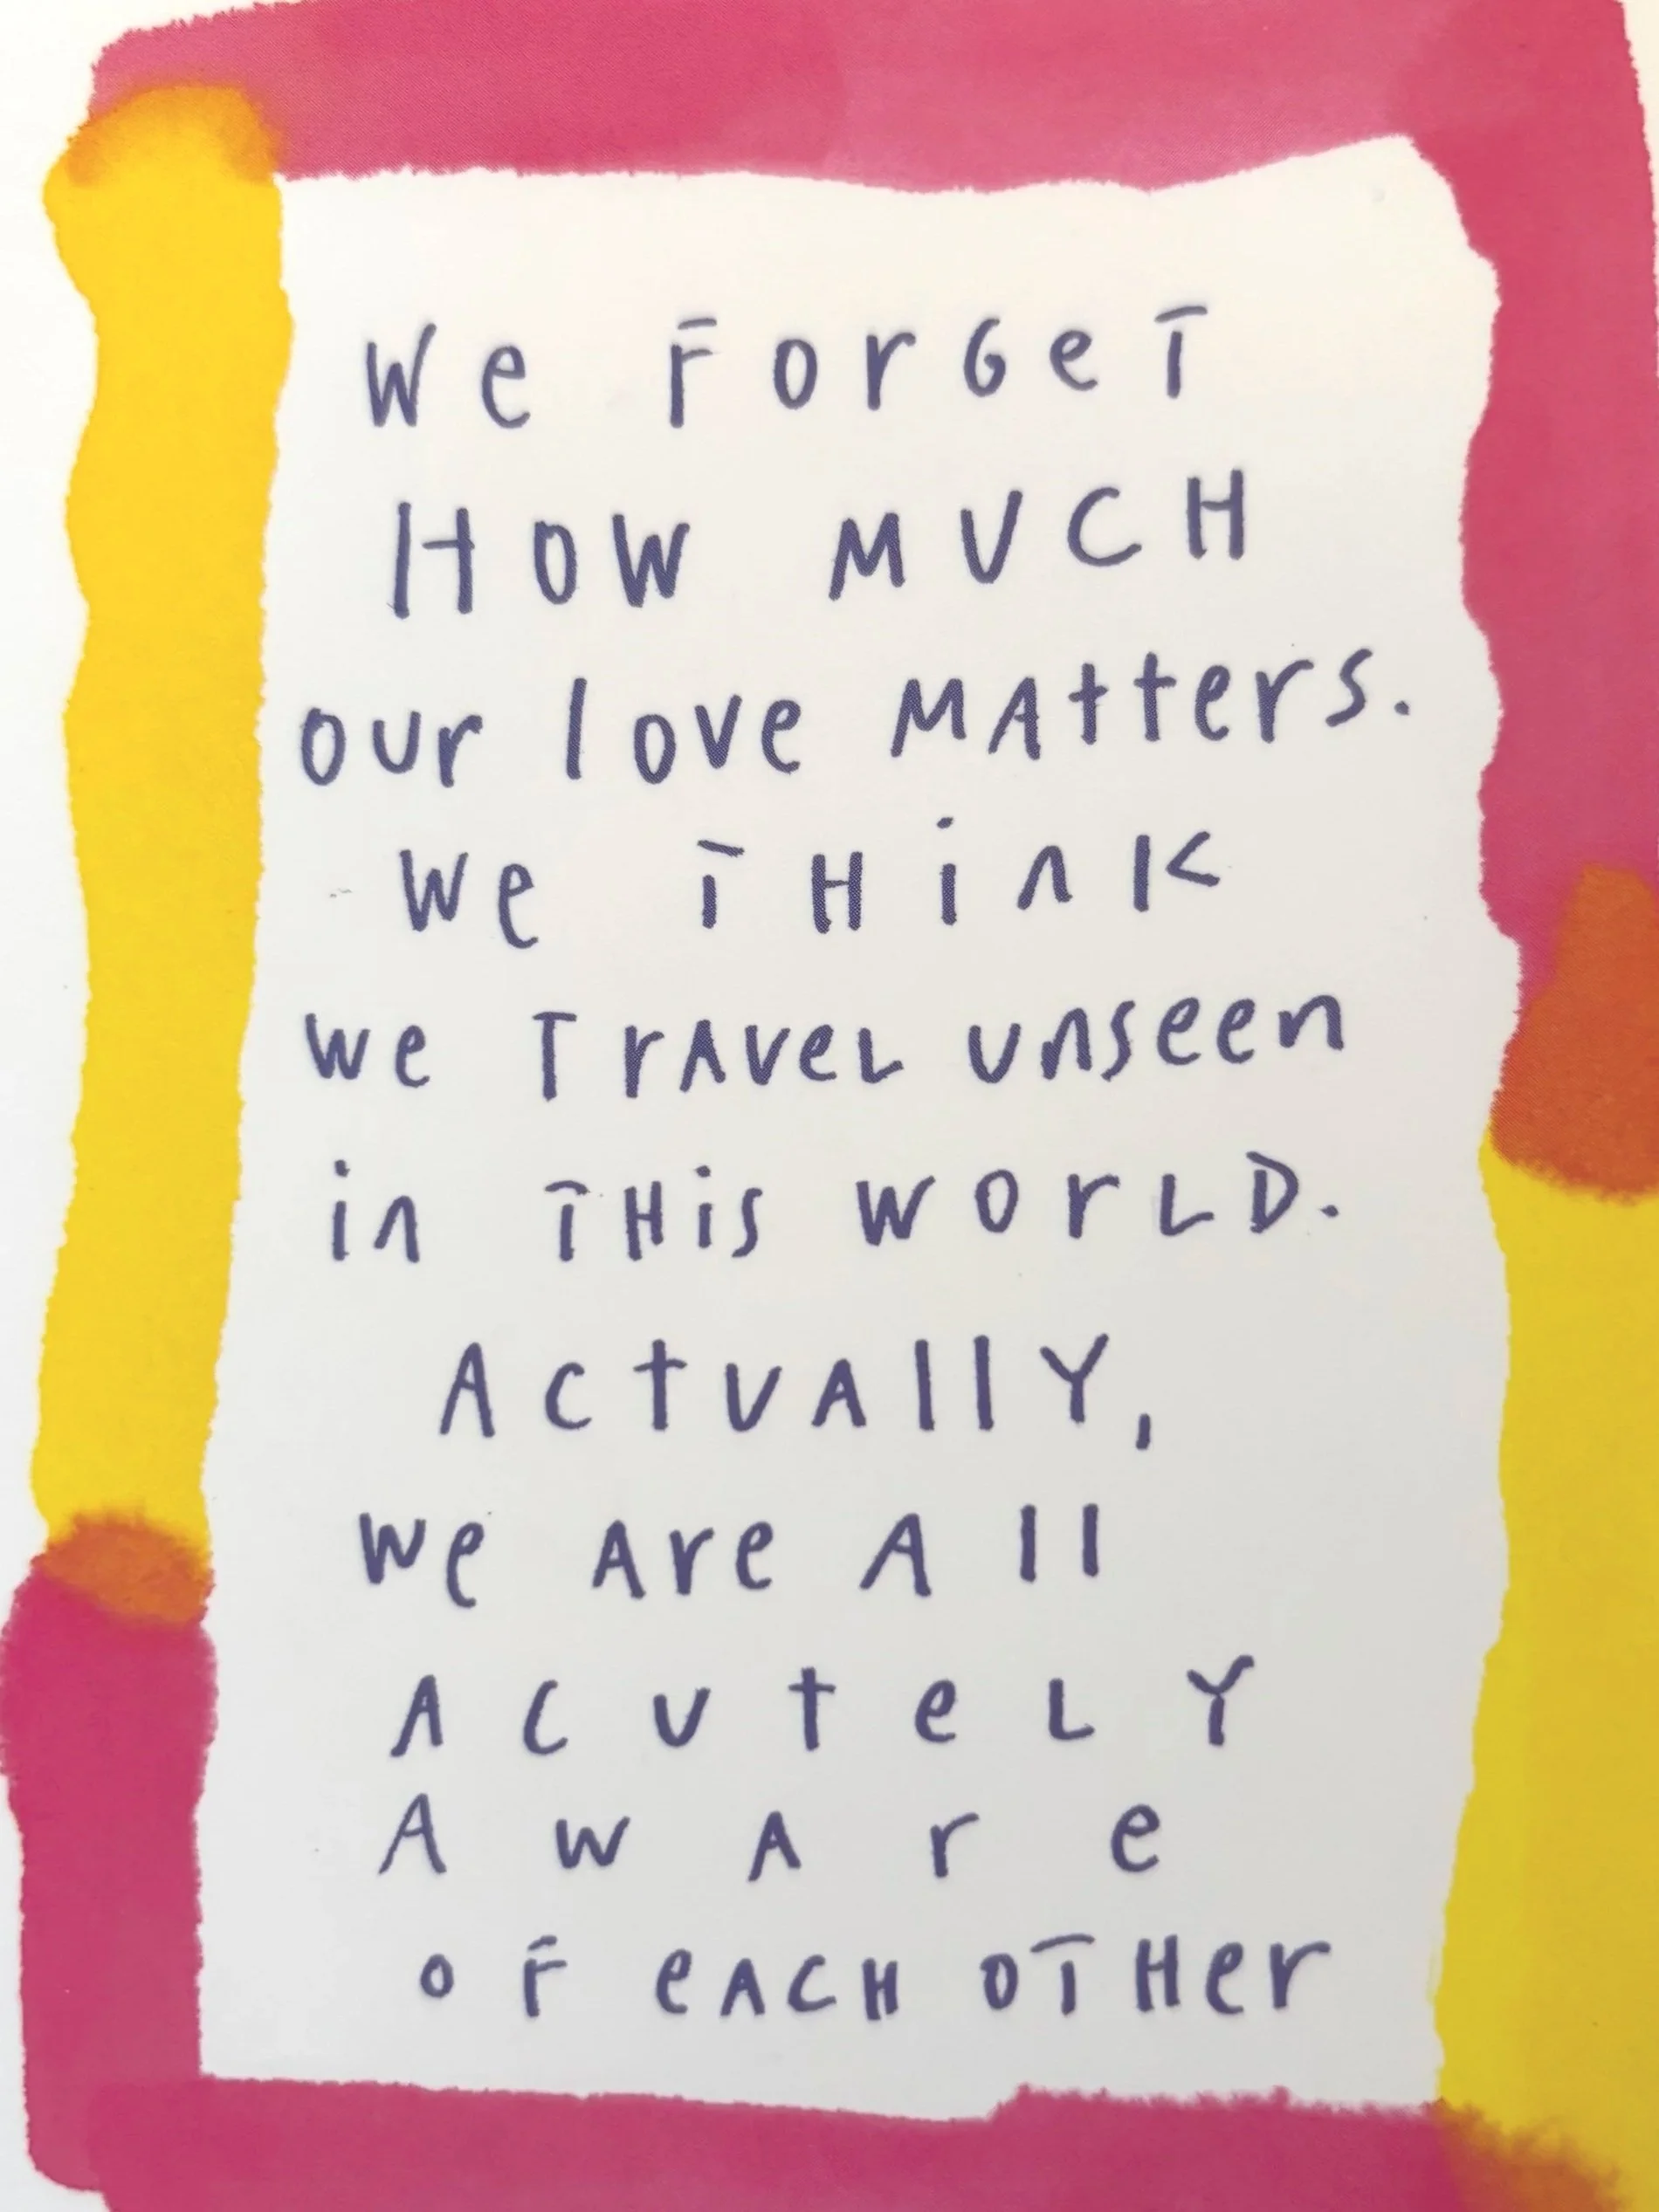 We ForGeT
HOW MUCH
our love MAtters.
We THink
we TrAveL unseen
in THis WorLD.
ActuAllY,
We Are All
AcuteLY
AwAre
oF eACH oTHer